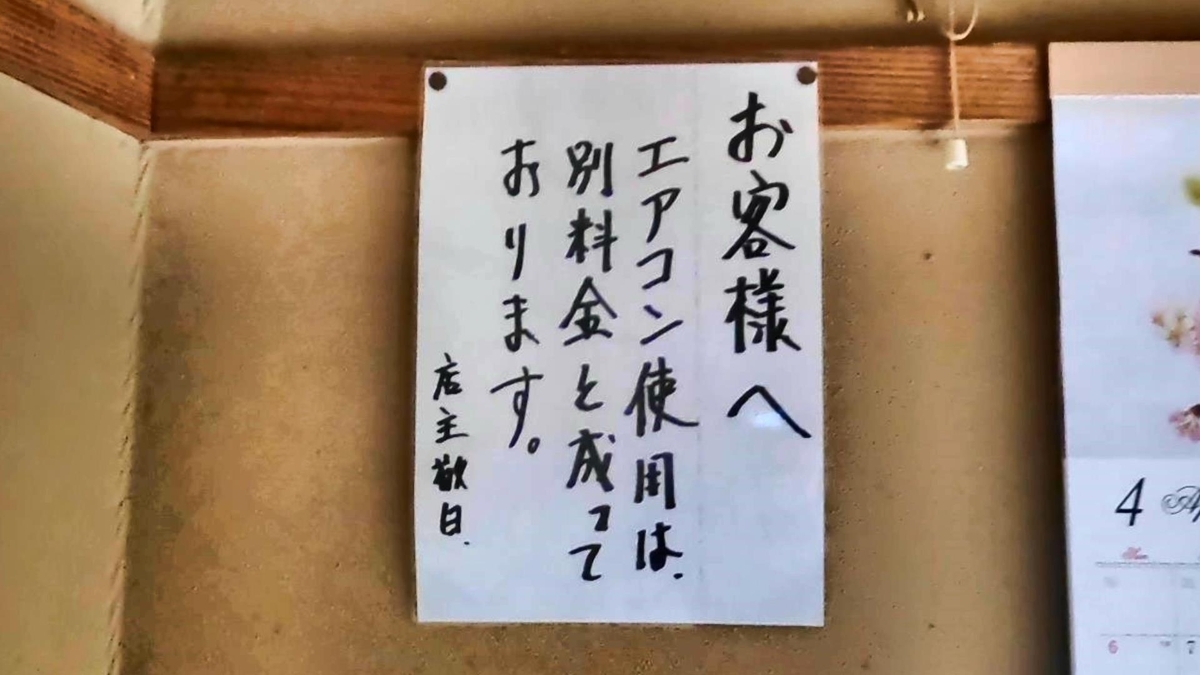 お客様へ
エアコン使用は、
別料金と成って
おります。
店主敬白.
4
6
7